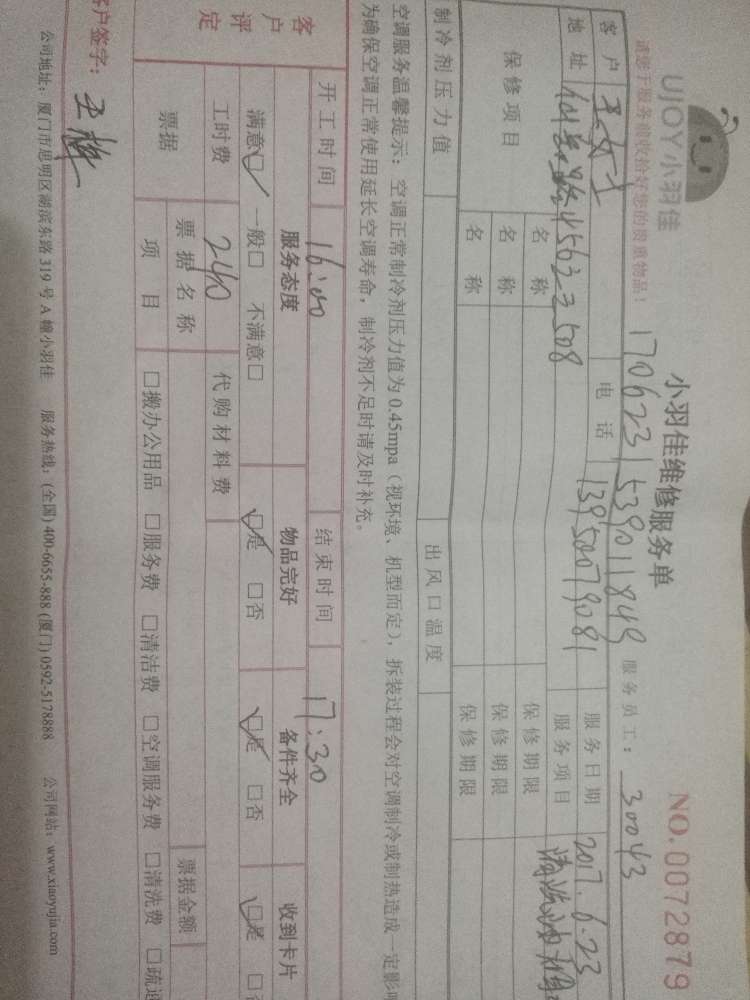 UJOY小羽佳
小羽佳维修服务单
NO.0072879
请您于服务前收拾好您的贵重物品!
170623153901 1849
服务员工: 30043
客户 王女士 电话 13950079081 服务日期 2017.6.23
地址 4563 3 508 服务项目 清洗油烟
保修项目 名称 保修期限
名称 保修期限
名称 保修期限
制冷剂压力值 出风口温度
空调服务温馨提示:空调正常制冷剂压力值为0.45mpa(视环境、机型而定),拆装过程会对空调制冷或制热造成一定影响
为确保空调正常使用延长空调寿命,制冷剂不足时请及时补充。
开工时间 16:00 结束时间 17:30
客户评定 服务态度 物品完好 备件齐全 收到卡片
满意□ 一般□ 不满意□ □是 □否 □是 □否 □是 □
工时费 240 代购材料费
票据 票据名称 票据金额
项目 □搬办公用品 □服务费 □清洁费 □空调服务费 □清洗费 □疏通
客户签字:王
公司地址:厦门市思明区湖滨东路319号A幢小羽佳 服务热线:(全国)400-6655-888(厦门)0592-5178888 公司网站:www.xiaoyujia.com